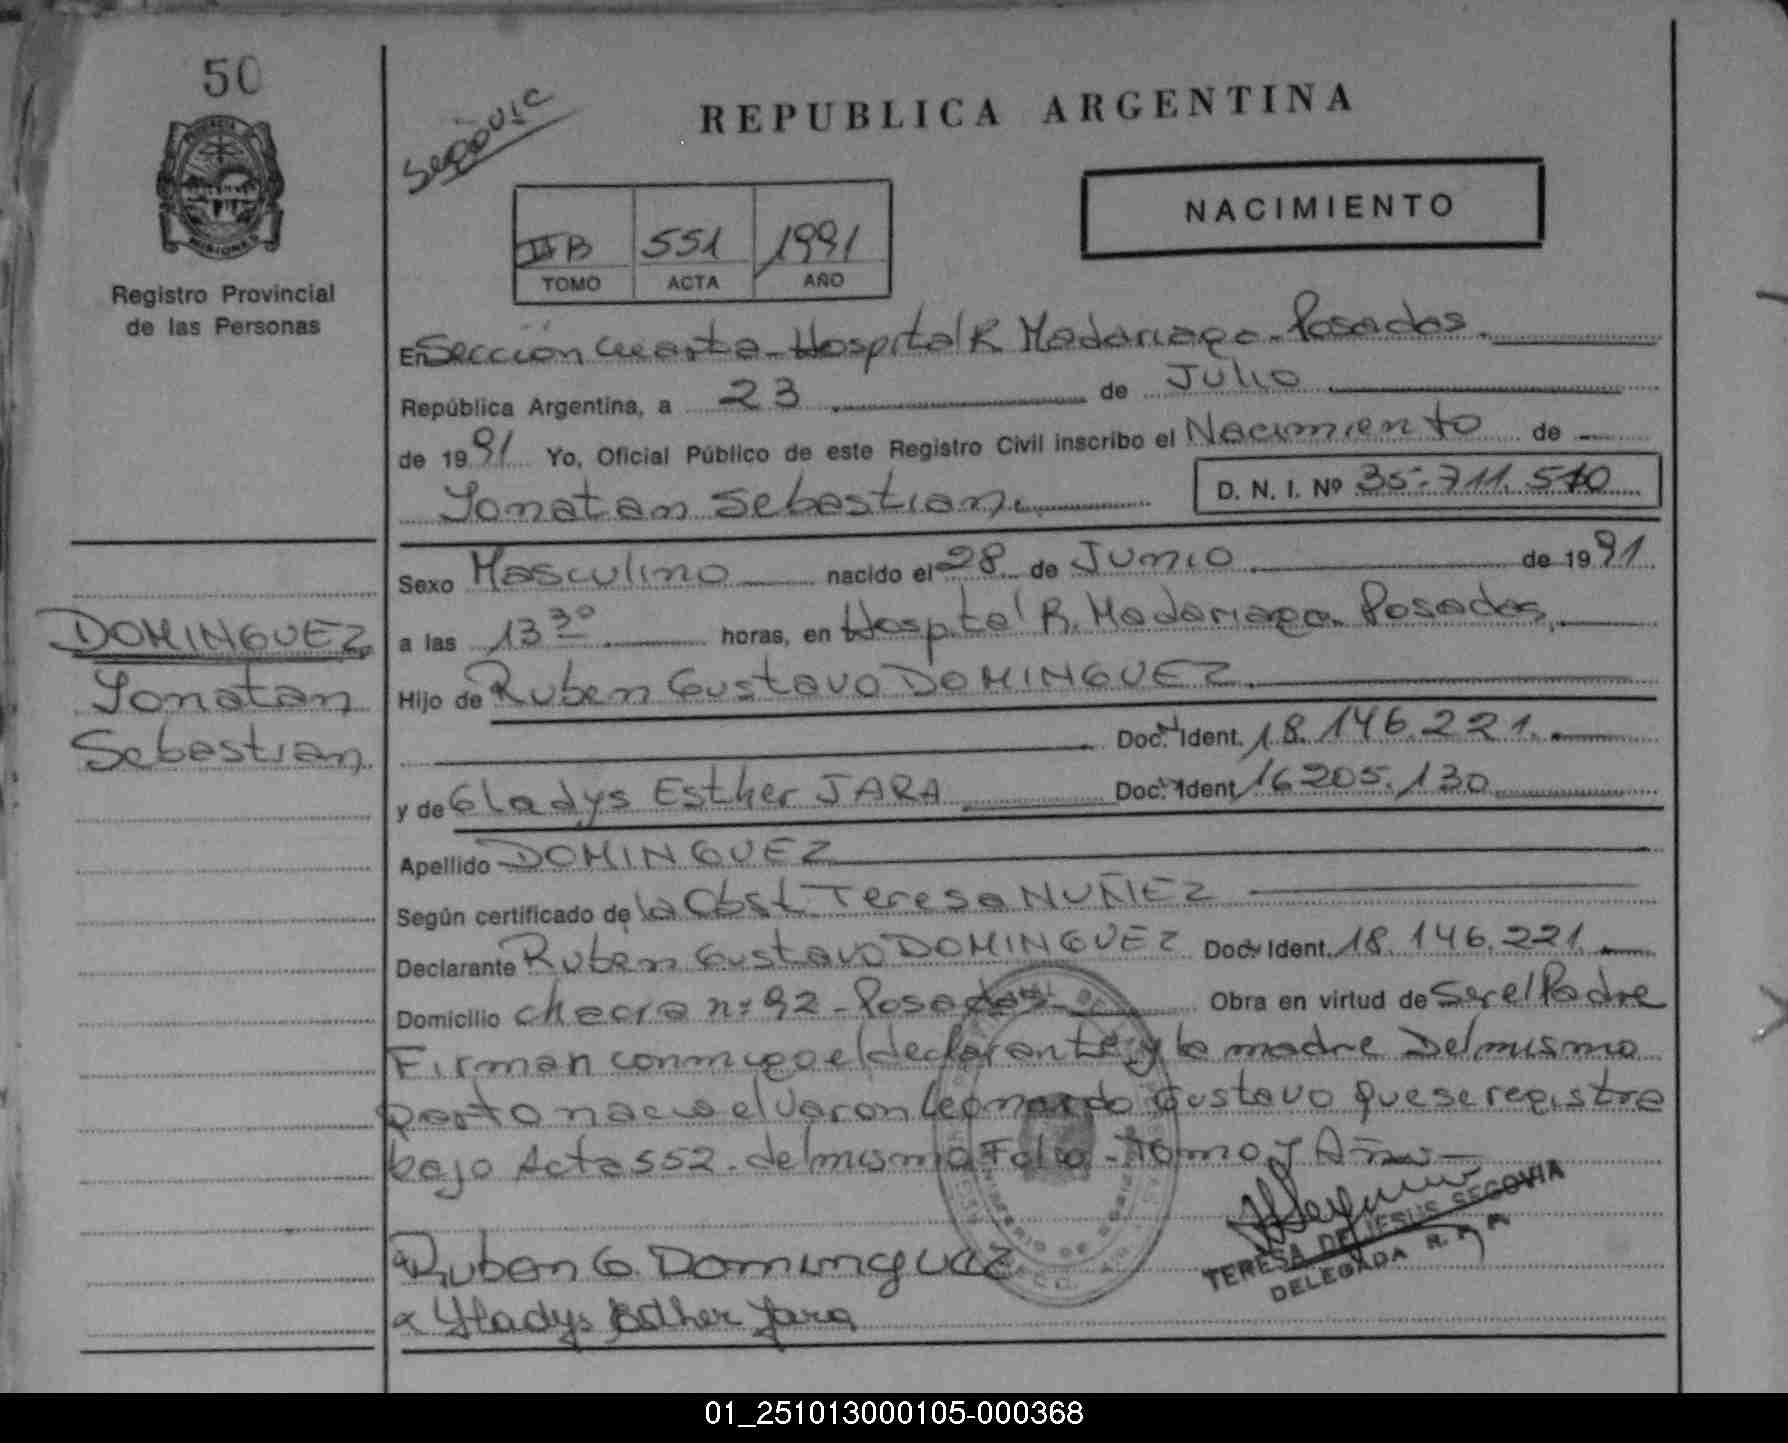 50
Segovia
REPUBLICA ARGENTINA
PROVINCIA
MISIONES
Registro Provincial
de las Personas
NACIMIENTO
II B 551 1991
TOMO ACTA AÑO
En Sección Cuarta - Hospital R. Madariaga - Posadas.
República Argentina, a 23 de Julio
de 1991 Yo, Oficial Público de este Registro Civil inscribo el Nacimiento de
Jonatan Sebastian. D. N. I. Nº 35.711.510
Sexo Masculino nacido el 28 de Junio de 1991
a las 13 30 horas, en Hospital R. Madariaga. Posadas,
Hijo de Ruben Gustavo DOMINGUEZ
Doc. Ident. 18.146.221.
y de Gladys Esther JARA Doc. Ident. 16205.130
Apellido DOMINGUEZ
Según certificado de la Obst. Teresa NUÑEZ
Declarante Ruben Gustavo DOMINGUEZ Doc. Ident. 18.146.221.
Domicilio chacra nº 92 - Posadas Obra en virtud de Ser el Padre
Firman conmigo el declarante y la madre Del mismo
parto nacio el varon Leonardo Gustavo que se registra
bajo Acta 552. del mismo Folio - Tomo y Año -
DOMINGUEZ
Jonatan
Sebastian
Ruben G. Dominguez
Gladys Esther Jara
TERESA DE JESUS SEGOVIA
DELEGADA R. P. P.
01_251013000105-000368